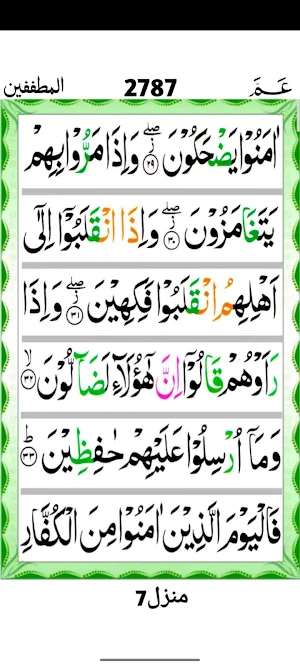 المطففين 2787 عَـمَّ
اٰمَنُوْا يَضْحَكُوْنَ ۖ۝۲۹ وَاِذَا مَرُّوْا بِهِمْ
يَتَغَامَزُوْنَ ۖ۝۳۰ وَاِذَا انْقَلَبُوْۤا اِلٰۤى
اَهْلِهِمُ انْقَلَبُوْا فَكِهِيْنَ ۖ۝۳۱ وَاِذَا
رَاَوْهُمْ قَالُوْۤا اِنَّ هٰۤؤُلَآءِ لَضَآلُّوْنَ ۙ۝۳۲
وَمَاۤ اُرْسِلُوْا عَلَيْهِمْ حٰفِظِيْنَ ؕ۝۳۳
فَالْيَوْمَ الَّذِيْنَ اٰمَنُوْا مِنَ الْكُفَّارِ
منزل7